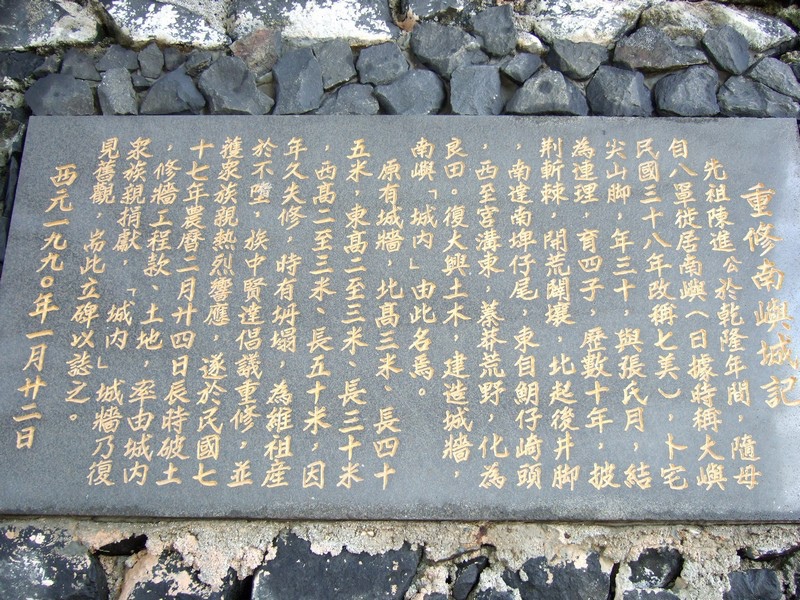 重修南嶼城記
先祖陳進公於乾隆年間，隨母
自八罩徙居南嶼（日據時稱大嶼
民國三十八年改稱七美），卜宅
尖山脚，年三十，與張氏月，結
為連理，育四子，歷數十年，披
荆斬棘，開荒闢壤，北起後井脚
，南達南埤仔尾，東自鮂仔崎頭
，西至宮溝東，蓁蓁荒野，化為
良田。復大興土木，建造城牆，
南嶼「城內」由此名焉。
原有城牆，北髙三米、長四十
五米，東髙二至三米、長三十米
，西髙二至三米、長五十米，因
年久失修，時有坍塌，為維祖産
於不墮，族中賢達倡議重修，並
獲眾族親熱烈響應，遂於民國七
十七年農曆二月廿四日辰時破土
，修牆工程款、土地，率由城內
眾族親捐獻，「城內」城牆乃復
見舊觀，耑此立碑以誌之。
西元一九九○年一月廿二日